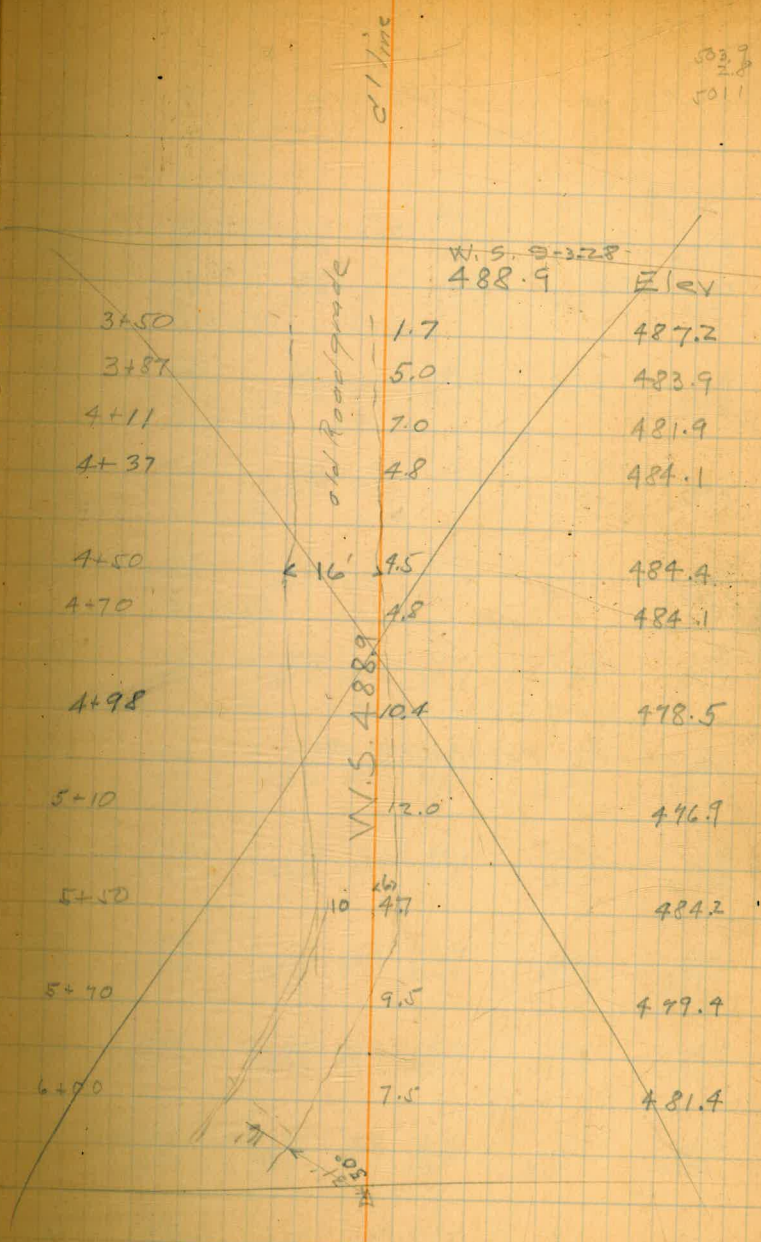 503.9
2.8
501 1
d' line
W. S. 9-3-28
488.9 Elev
old Road grade
3+50 1.7 487.2
3+87 5.0 483.9
4+11 7.0 481.9
4+37 4.8 484.1
4+50 16' 4.5 484.4
4+70 4.8 484.1
W.S. 488.9
4+98 10.4 478.5
5+10 12.0 476.9
5+50 10 4.7 484.2
5+70 9.5 479.4
6+00 7.5 481.4
50°